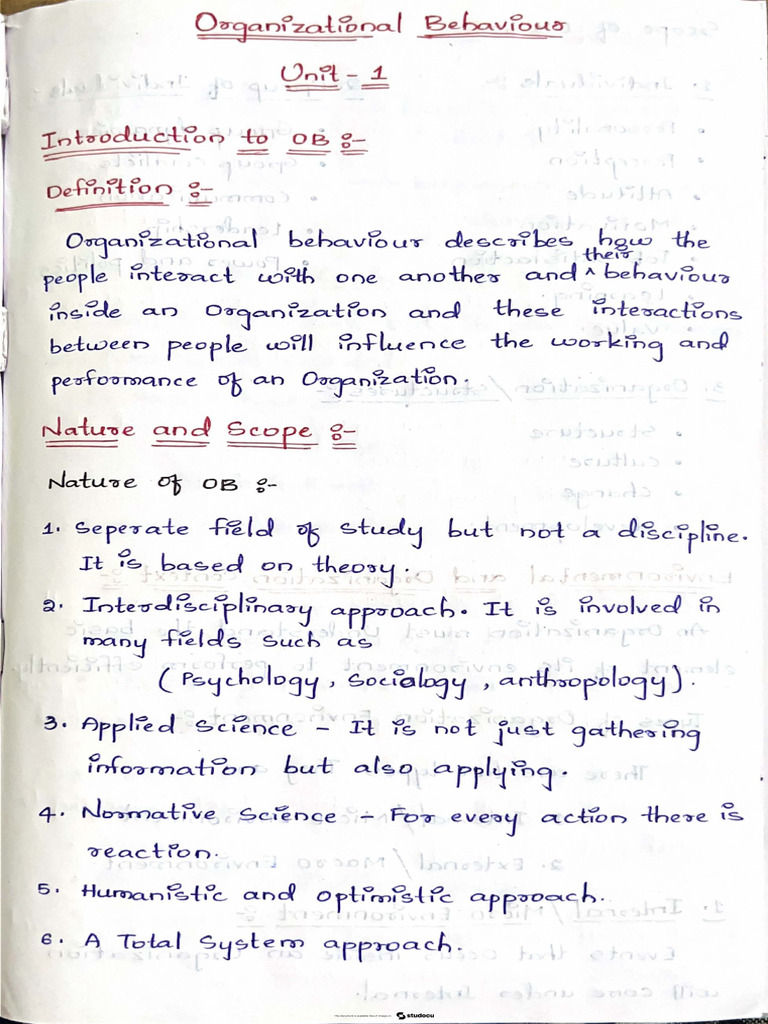 Organizational Behaviour
Unit - 1
Introduction to OB :-
Definition :-
Organizational behaviour describes how the
people interact with one another and ^their behaviour
inside an Organization and these interactions
between people will influence the working and
performance of an Organization.
Nature and Scope :-
Nature of OB :-
1. Seperate field of study but not a discipline.
It is based on theory.
2. Interdisciplinary approach. It is involved in
many fields such as
(Psychology, Sociology, anthropology).
3. Applied Science - It is not just gathering
information but also applying.
4. Normative Science :- For every action there is
reaction.
5. Humanistic and optimistic approach.
6. A Total System approach.
studocu